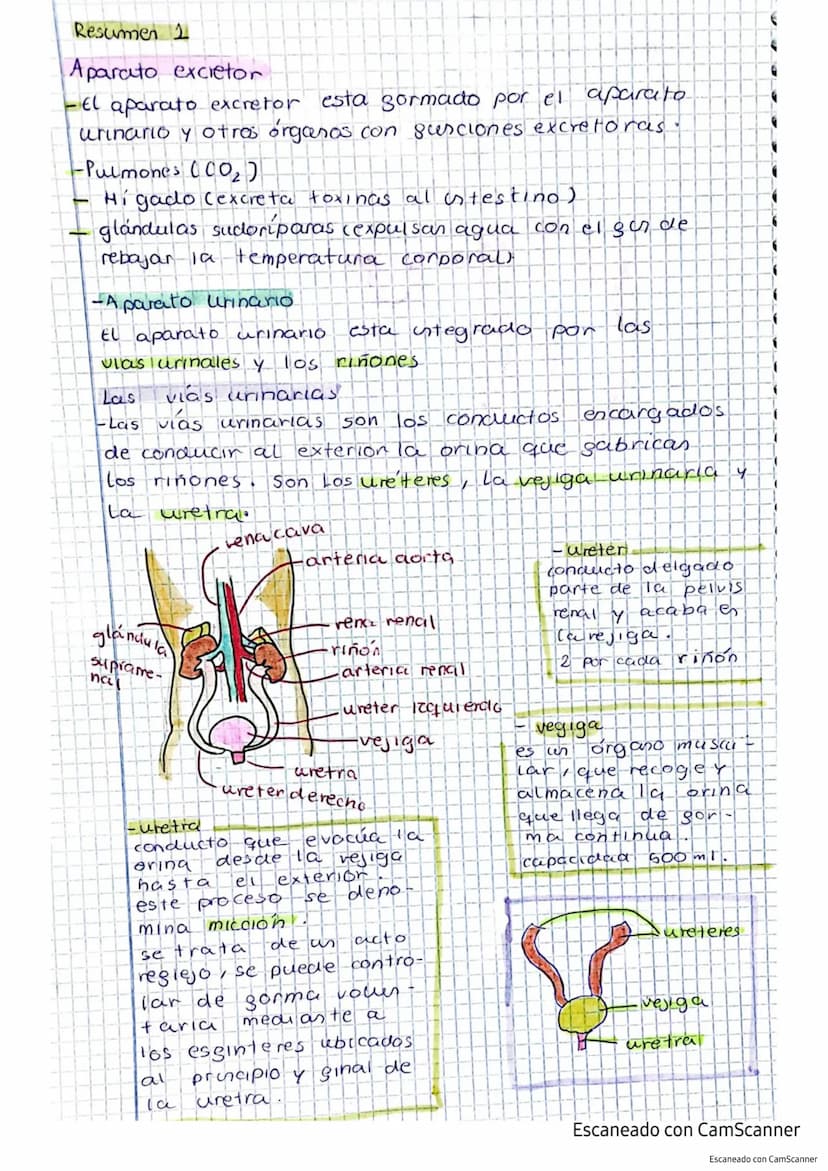 Resumen 1
Aparato excretor
-El aparato excretor esta formado por el aparato
urinario y otros órganos con funciones excretoras.
-Pulmones (CO₂)
- Hígado (excreta toxinas al intestino)
- glándulas sudoríparas (expulsan agua con el fin de
rebajar la temperatura corporal)
-Aparato urinario
El aparato urinario esta integrado por las
vias urinales y los riñones
Las viás urinarias
-Las viás urinarias son los conductos encargados
de conducir al exterion la orina que fabrican
los riñones. Son Los uréteres, la vejiga urinaria y
La uretra.
vena cava
arteria aorta
glándula
suprarre-
nal
vena renal
riñón
arteria renal
ureter izquierdo
vejiga
uretra
ureter derecho
- ureter
conducto delgado
parte de la pelvis
renal y acaba en
la vejiga.
2 por cada riñón
- vegiga
es un órgano muscu-
lar, que recoge y
almacena la orina
que llega de for-
ma continua.
capacidad 500 ml.
-uretra
conducto que evocúa la
orina desde la vejiga
hasta el exterior.
este proceso se deno-
mina micción.
se trata de un acto
reflejo, se puede contro-
lar de forma volun-
taria mediante a
los esfinteres ubicados
al principio y final de
la uretra.
ureteres
vejiga
uretra
Escaneado con CamScanner
Escaneado con CamScanner